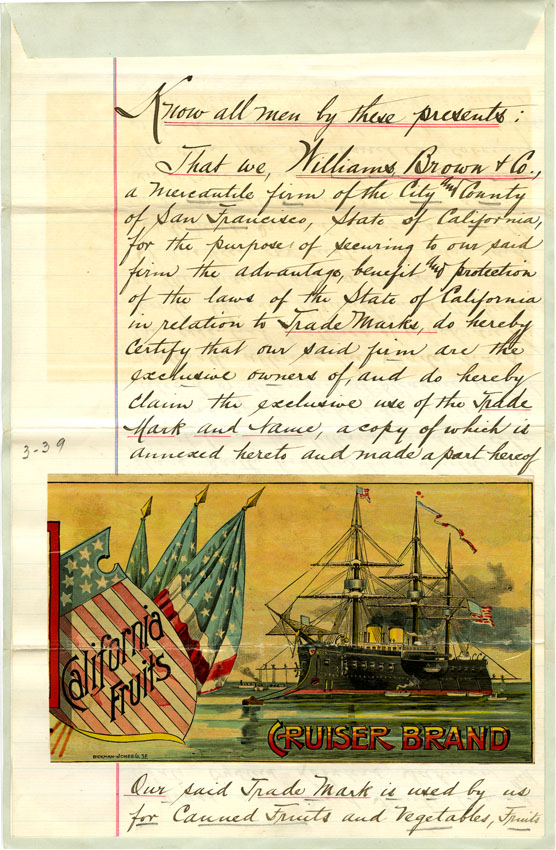 Know all men by these presents;
That we, Williams, Brown & Co.,
a Mercantile firm of the City and County
of San Francisco, State of California,
for the purpose of securing to our said
firm the advantage, benefit and protection
of the laws of the State of California
in relation to Trade Marks, do hereby
Certify that our said firm are the
exclusive owners of, and do hereby
claim the exclusive use of the Trade
Mark and Name, a copy of which is
annexed hereto and made a part hereof
3-39
California
Fruits
CRUISER BRAND
Our said Trade Mark is used by us
for Canned Fruits and Vegetables, Fruits